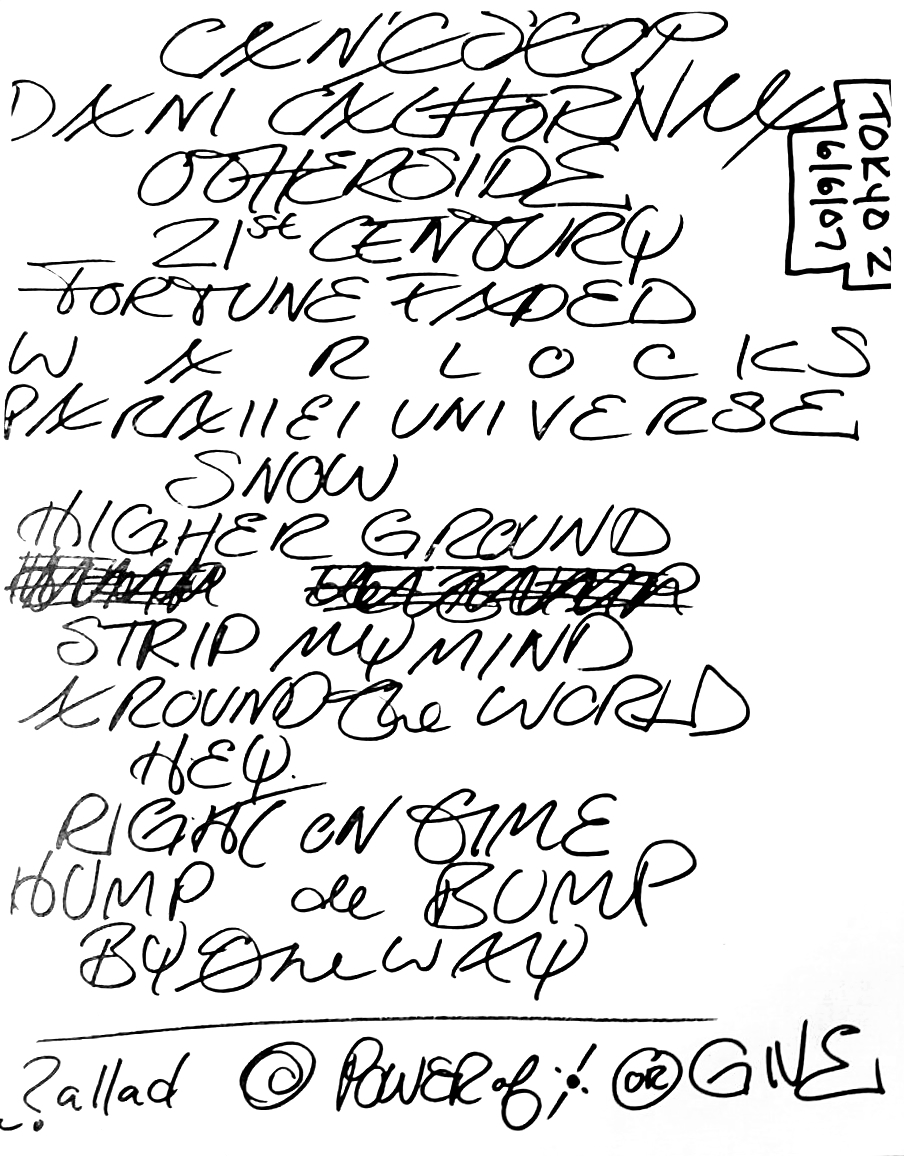 CAN'T STOP
DANI CALIFORNIA
OTHERSIDE
21st CENTURY
FORTUNE FADED
WARLOCKS
PARALLEL UNIVERSE
SNOW
HIGHER GROUND
STRIP MY MIND
AROUND the WORLD
HEY
RIGHT ON TIME
HUMP de BUMP
BY the WAY
?allad © POWER of OR GIVE
TOKYO 2
6/6/07